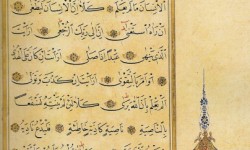 الْإِنْسَانَ مَا لَمْ يَعْلَمْ كَلَّا إِنَّ الْإِنْسَانَ لَيَطْغَى
أَنْ رَآهُ اسْتَغْنَى إِنَّ إِلَى رَبِّكَ الرُّجْعَى أَرَأَيْتَ
الَّذِي يَنْهَى عَبْدًا إِذَا صَلَّى أَرَأَيْتَ إِنْ كَانَ عَلَى الْهُدَى
أَوْ أَمَرَ بِالتَّقْوَى أَرَأَيْتَ إِنْ كَذَّبَ وَتَوَلَّى
أَلَمْ يَعْلَمْ بِأَنَّ اللَّهَ يَرَى كَلَّا لَئِنْ لَمْ يَنْتَهِ لَنَسْفَعًا
بِالنَّاصِيَةِ نَاصِيَةٍ كَاذِبَةٍ خَاطِئَةٍ فَلْيَدْعُ نَادِيَهُ